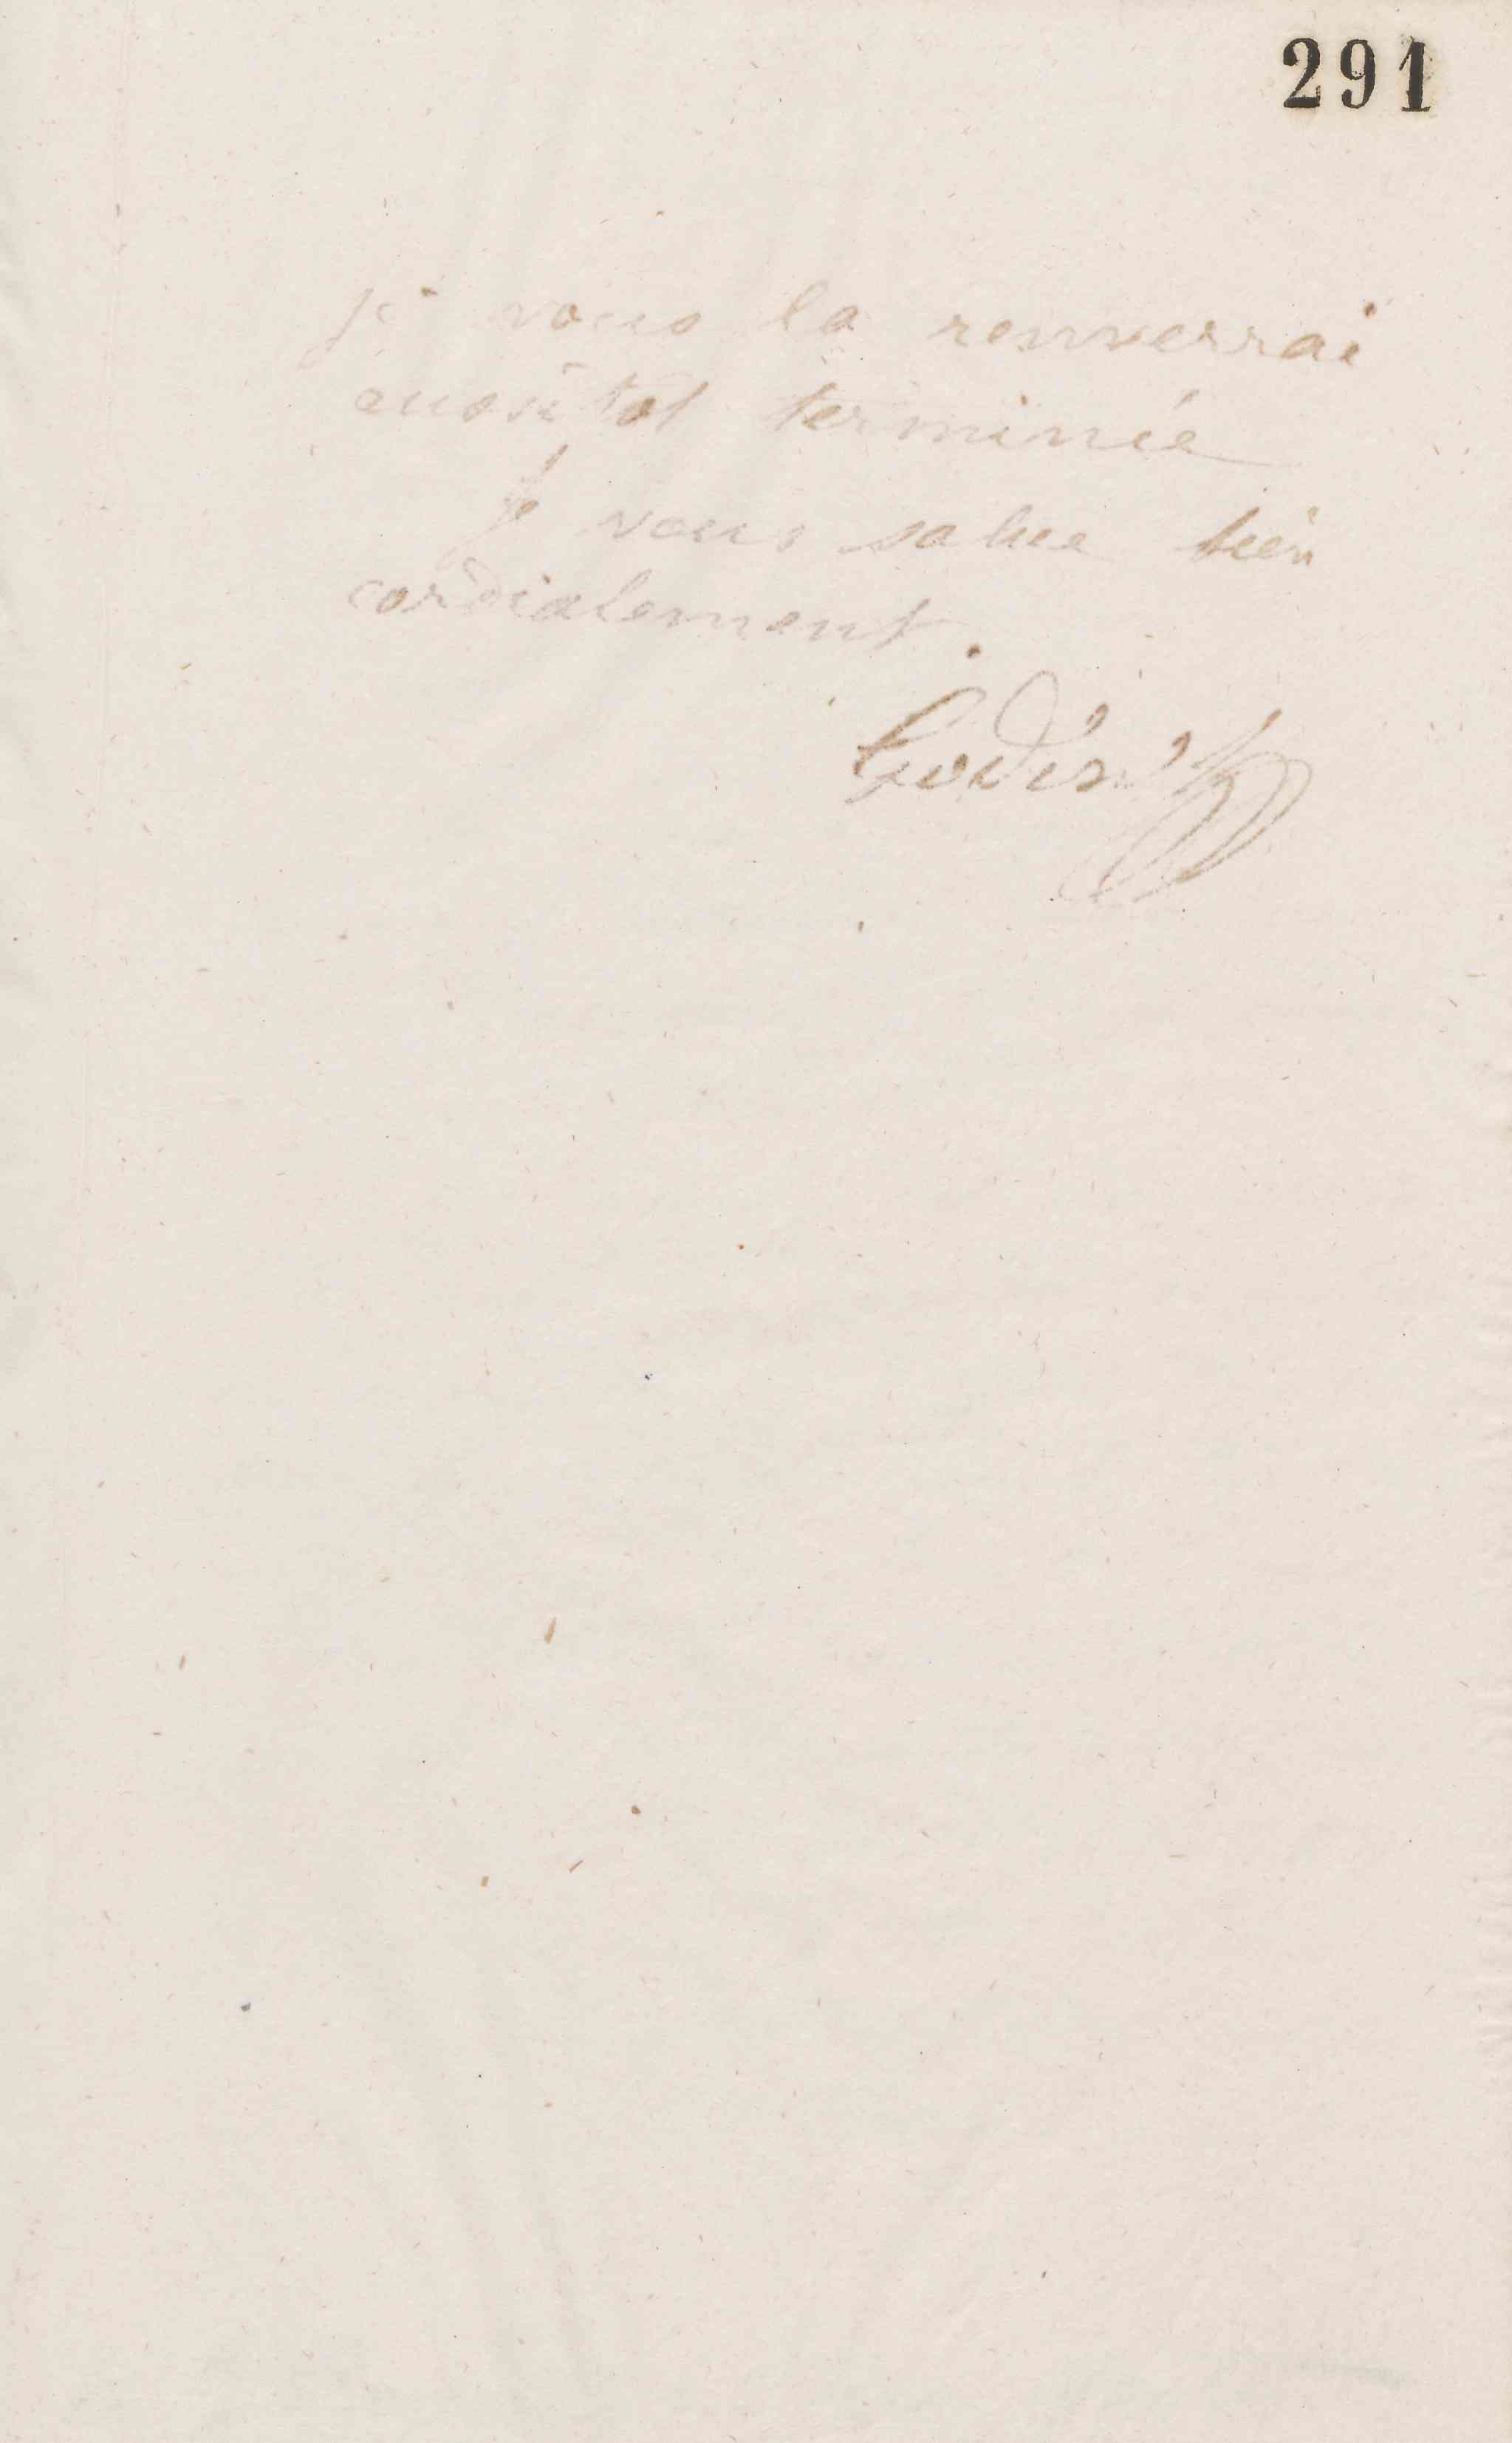 291
je vous la renverrai
aussitôt terminée
Je vous salue bien
cordialement.
Godin